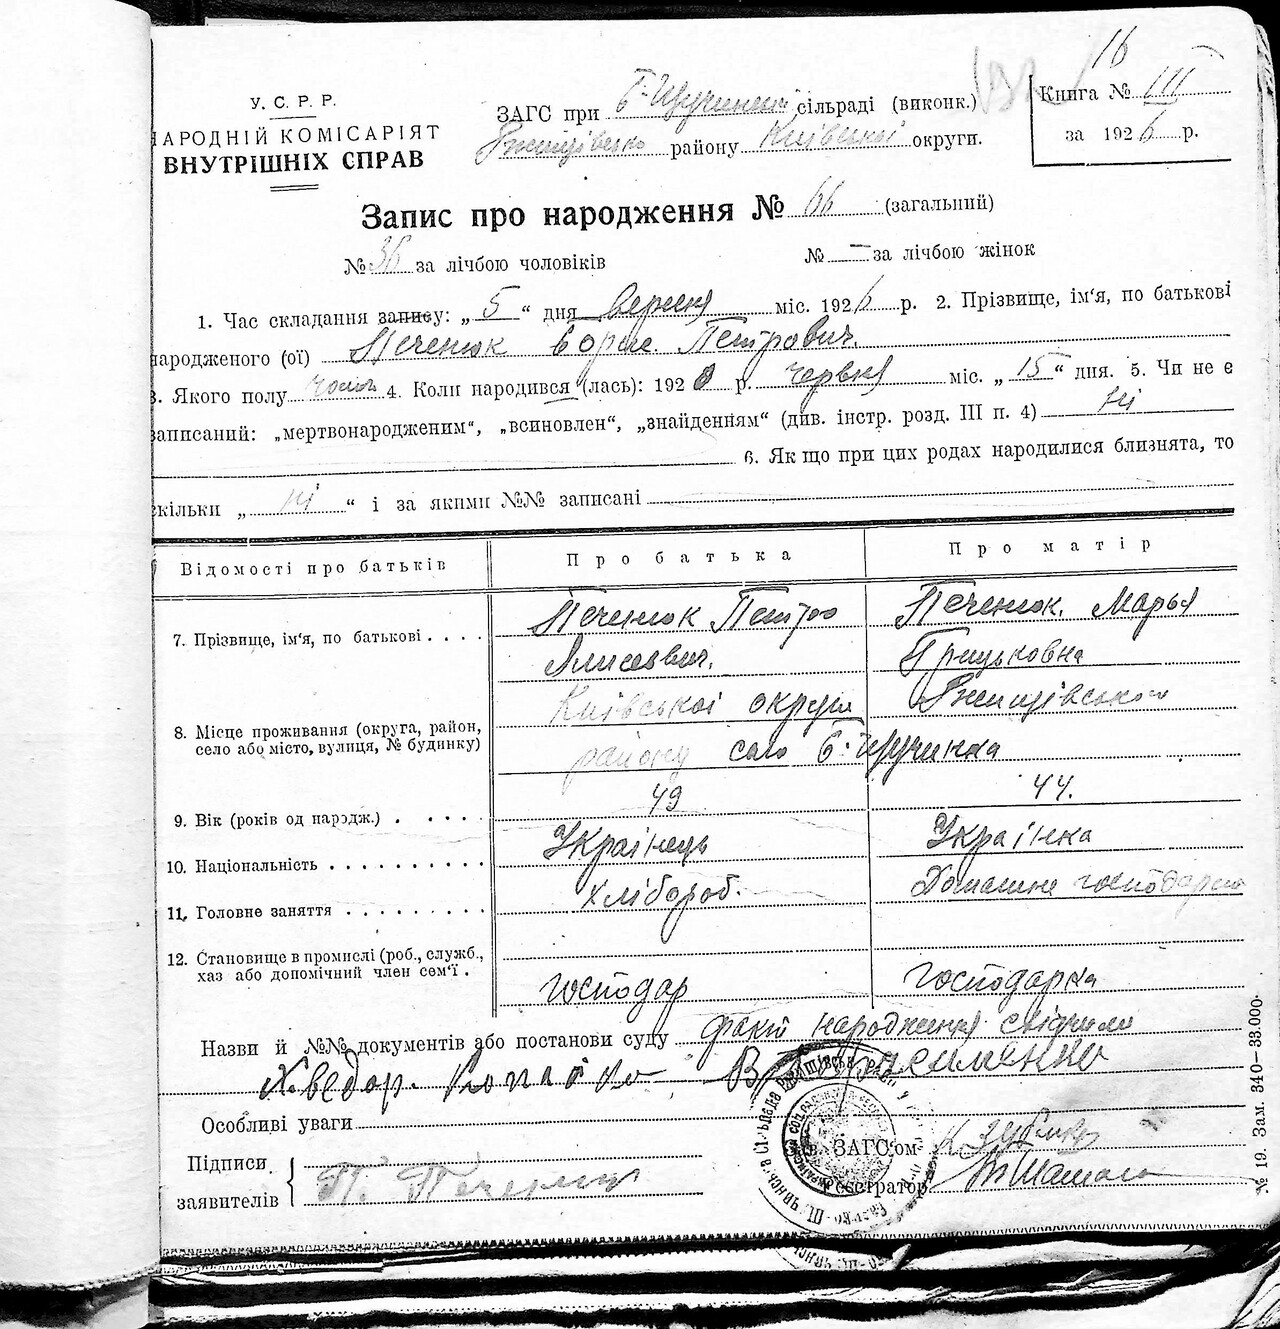 16
У. С. Р. Р.
НАРОДНІЙ КОМІСАРІЯТ
ВНУТРІШНІХ СПРАВ
ЗАГС при сільраді (виконк.)
району Київської округи.
Книга № III
за 1926 р.
Запис про народження № 66 (загальний)
№ 36 за лічбою чоловіків № — за лічбою жінок
1. Час складання запису: „ 5 “ дня вересня міс. 1926 р. 2. Прізвище, ім‘я, по батькові
народженого (ої) Печенюк Петрович.
3. Якого полу 4. Коли народився (лась): 1920 р. червня міс. „ 15 “ дня. 5. Чи не є
записаний: „мертвонародженим“, „всиновлен“, „знайденням“ (див. інстр. розд. III п. 4) ні
6. Як що при цих родах народилися близнята, то
скільки „ ні “ і за якими №№ записані
Відомості про батьків Про батька Про матір
7. Прізвище, ім‘я, по батькові . . . . Печенюк Петро Печенюк. Марья
Алисеевич. Грицьковна
8. Місце проживання (округа, район,
село або місто, вулиця, № будинку)
Київської округи
району село
9. Вік (років од народж.) . . . . . 49 44.
10. Національність . . . . . . . . . Українець Українка
11. Головне заняття . . . . . . . . Хлібороб. Домашне
12. Становище в промислі (роб., служб.,
хаз або допомічний член сем‘ї .
господар господарка
Назви й №№ документів або постанови суду факт народження свідчили
Хведор.
Особливі уваги
Підписи
заявителів
П.
Зав. ЗАГС‘ом
Реєстратор
№ 19. Зам. 340—38.000·